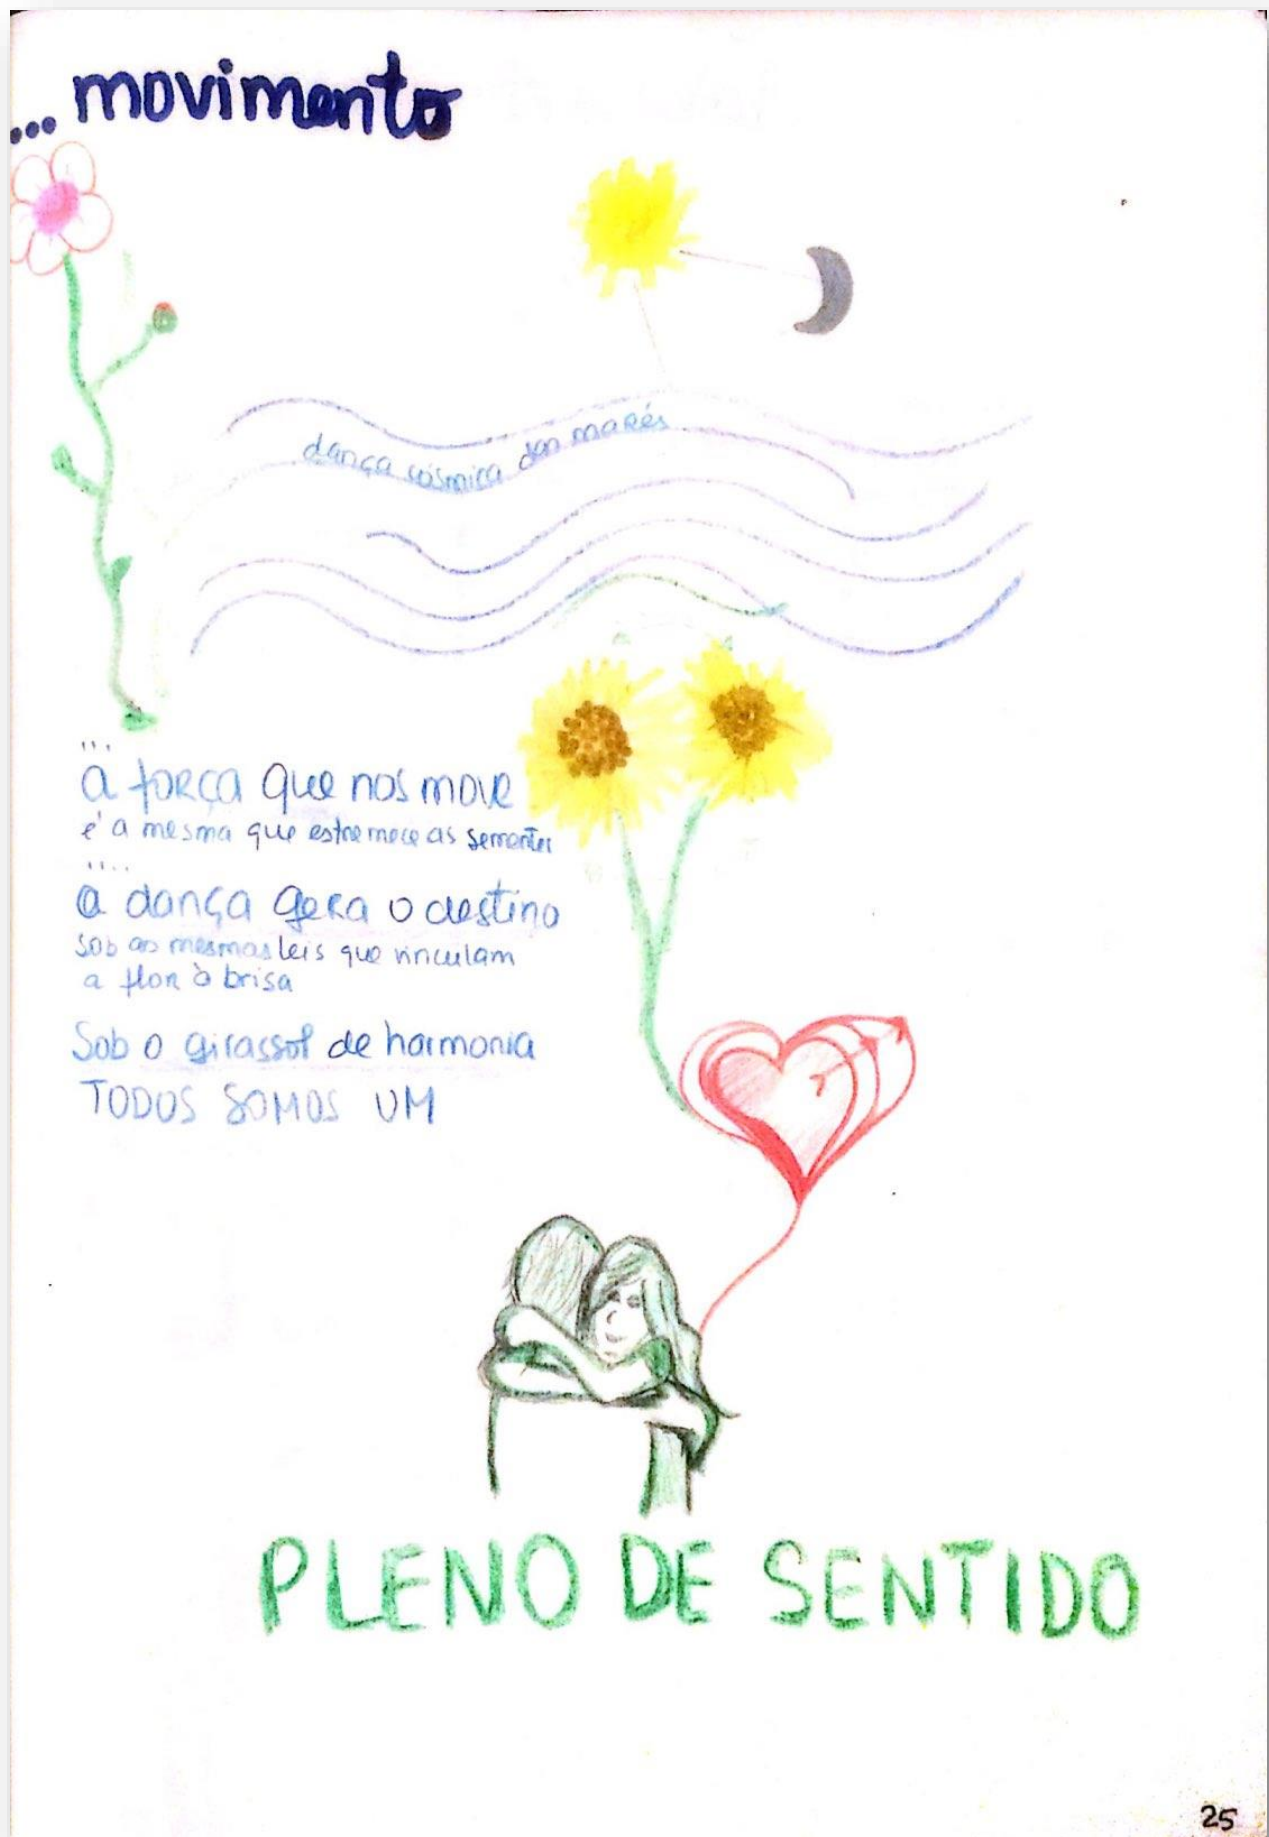 ...movimento
dança cósmica das marés
...
a força que nos move
é a mesma que estremece as sementes
....
a dança gera o destino
sob as mesmas leis que vinculam
a flor à brisa
Sob o girassol de harmonia
TODOS SOMOS UM
PLENO DE SENTIDO
25